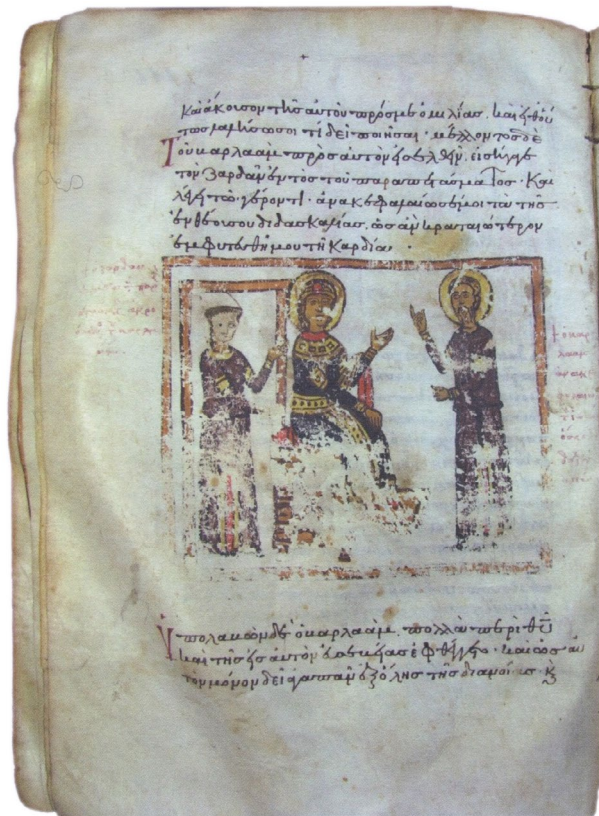 καὶ ἄκουσον τῆς αὐτοῦ πρός με ὁμιλίας. καὶ εἶθ' οὕ
τως λαλήσω σοι τί δεῖ ποιῆσαι · μέλλοντος δὲ
Τοῦ βαρλαὰμ πρὸς αὐτὸν εἰσελθεῖν, εἰσάγει
τὸν Ζαρδὰν ἐντὸς τοῦ παραπετάσματος · Καὶ
λέγει τῷ γέροντι · ἀνακεφαλαίωσαί μοι τὰ τῆς
ἐνθέου σου διδασκαλίας, ὡς ἂν κραταιώτερον
ἐμφυτευθῇ μου τῇ Καρδίᾳ ·
Ὑπολαβὼν δὲ ὁ βαρλαὰμ, πολλὰ περὶ θῦ
καὶ τῆς εἰς αὐτὸν εὐσεβείας ἐφθέγγετο · καὶ ὡς αὐ
τὸν μόνον δεῖ ἀγαπᾶν ἐξ ὅλης τῆς διανοίας · κ